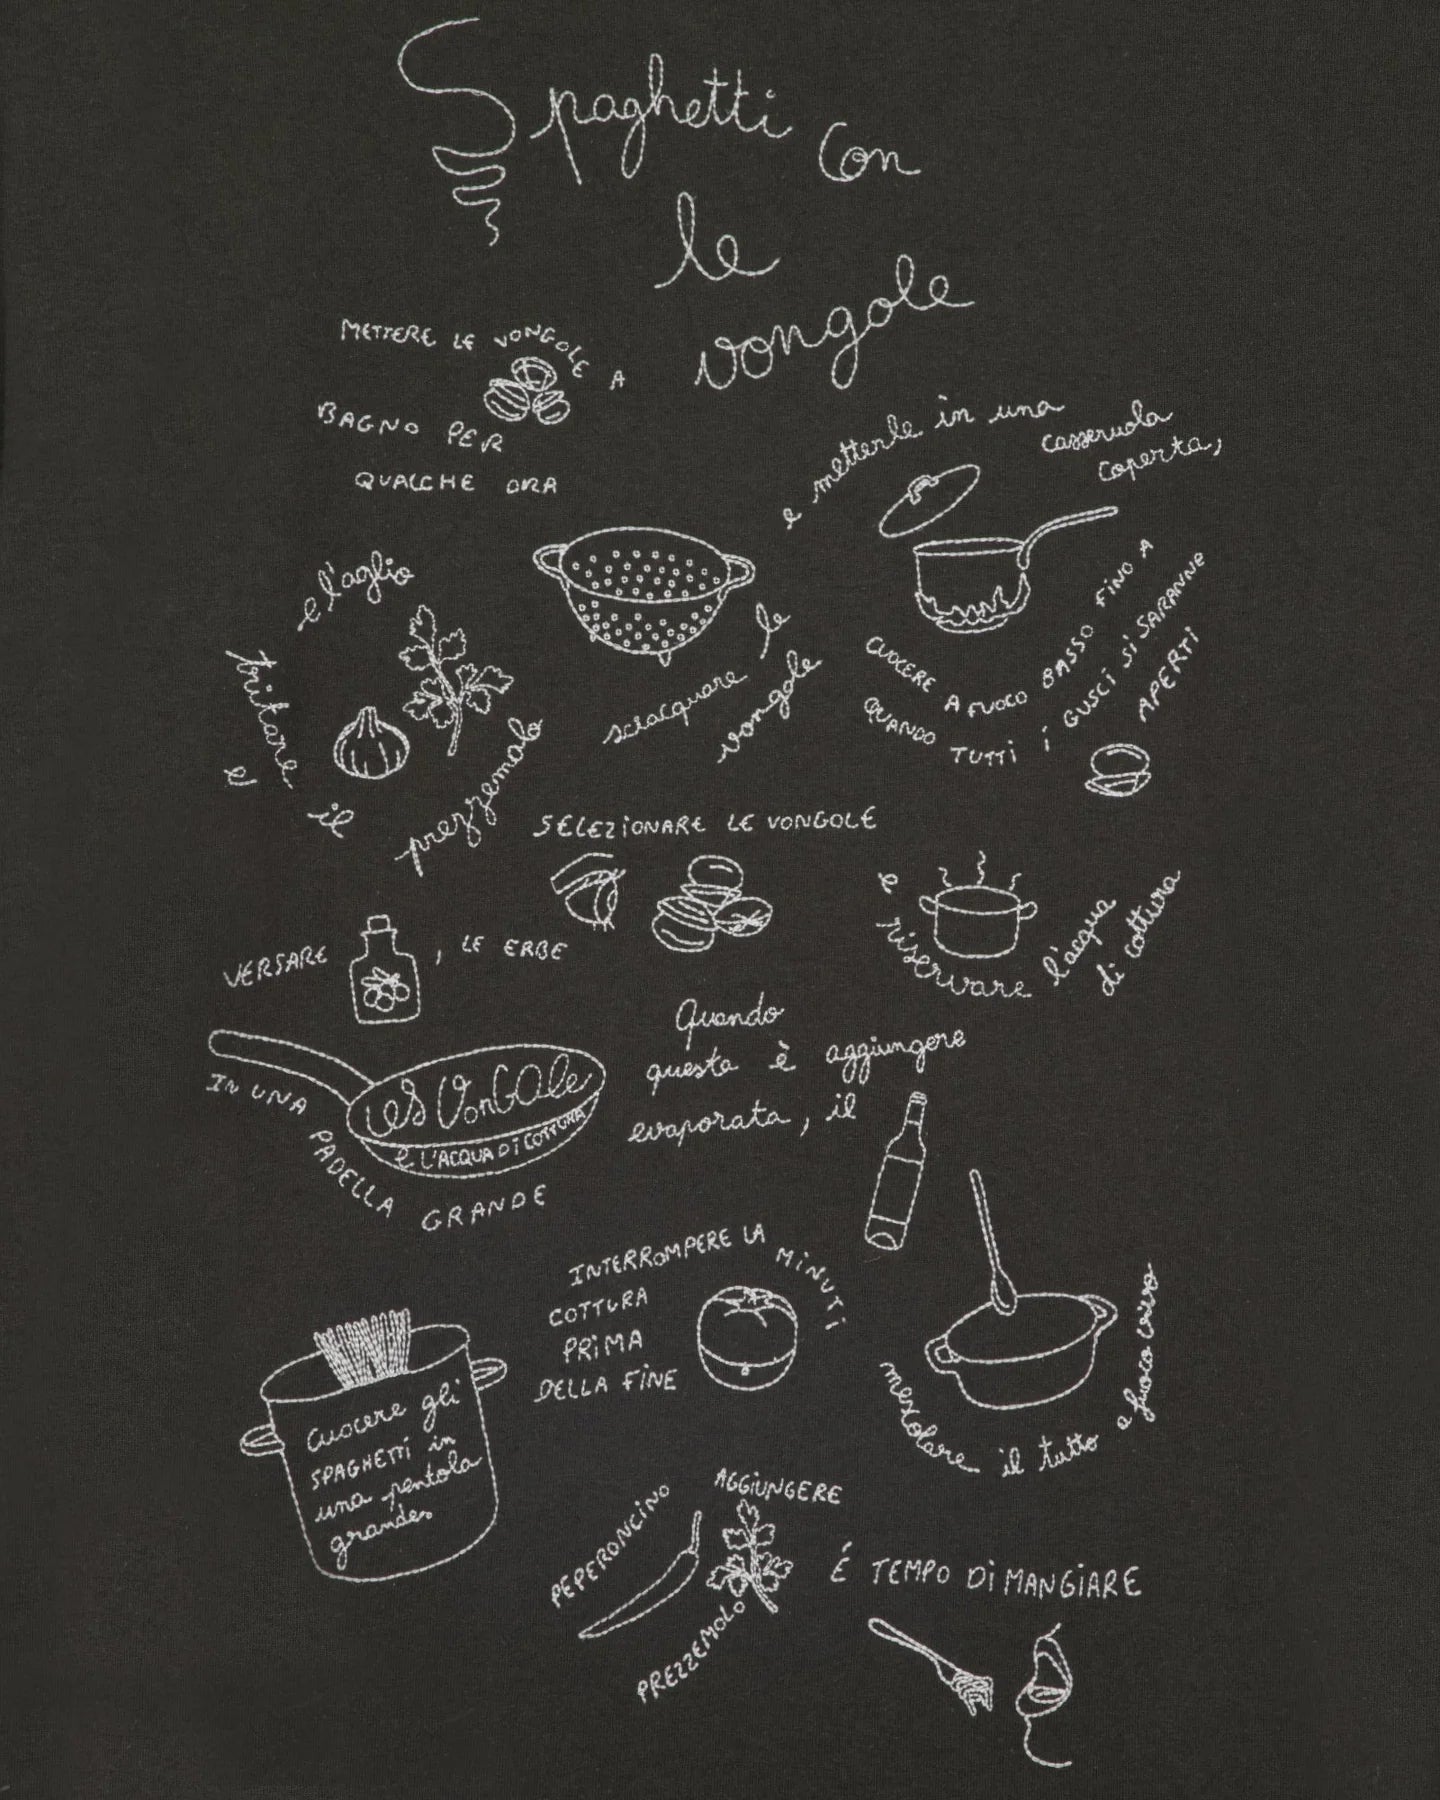 Spaghetti con
le
vongole
METTERE LE VONGOLE A
BAGNO PER
QUALCHE ORA
e metterle in una
casseruola
coperta,
sciacquare le
vongole
CUOCERE A FUOCO BASSO FINO A
QUANDO TUTTI i GUSCI Si SARANNE
APERTI
tritare e l'aglio
e il prezzemolo
SELEZIONARE LE VONGOLE
e riservare l'acqua
di cottura
VERSARE , LE ERBE
les VonGOle
e L'ACQUA Di COTTURA
IN UNA PADELLA GRANDE
Quando
questa è aggiungere
evaporata, il
INTERROMPERE LA MiNUTi
COTTURA
PRiMA
DELLA FiNE
mexolare il tutto a fuoco vivo
Cuocere gli
SPAGHETTi in
una pentola
grandes
AGGiUNGERE
PEPERONCiNO
PREZZEMOLO
É TEMPO Di MANGiARE